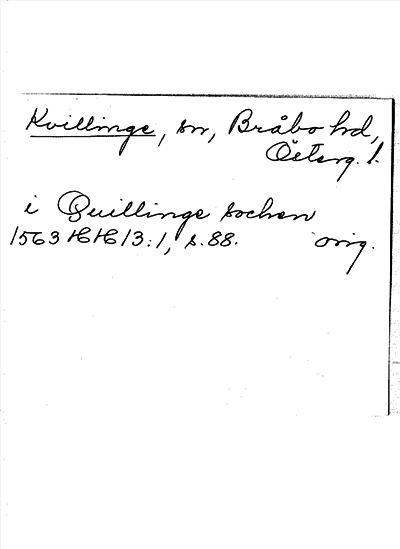 Kvillinge, sn, Bråbo hd,
Österg. l.
i Quillinge sochen
1563 HH 13:1, s. 88. orig.